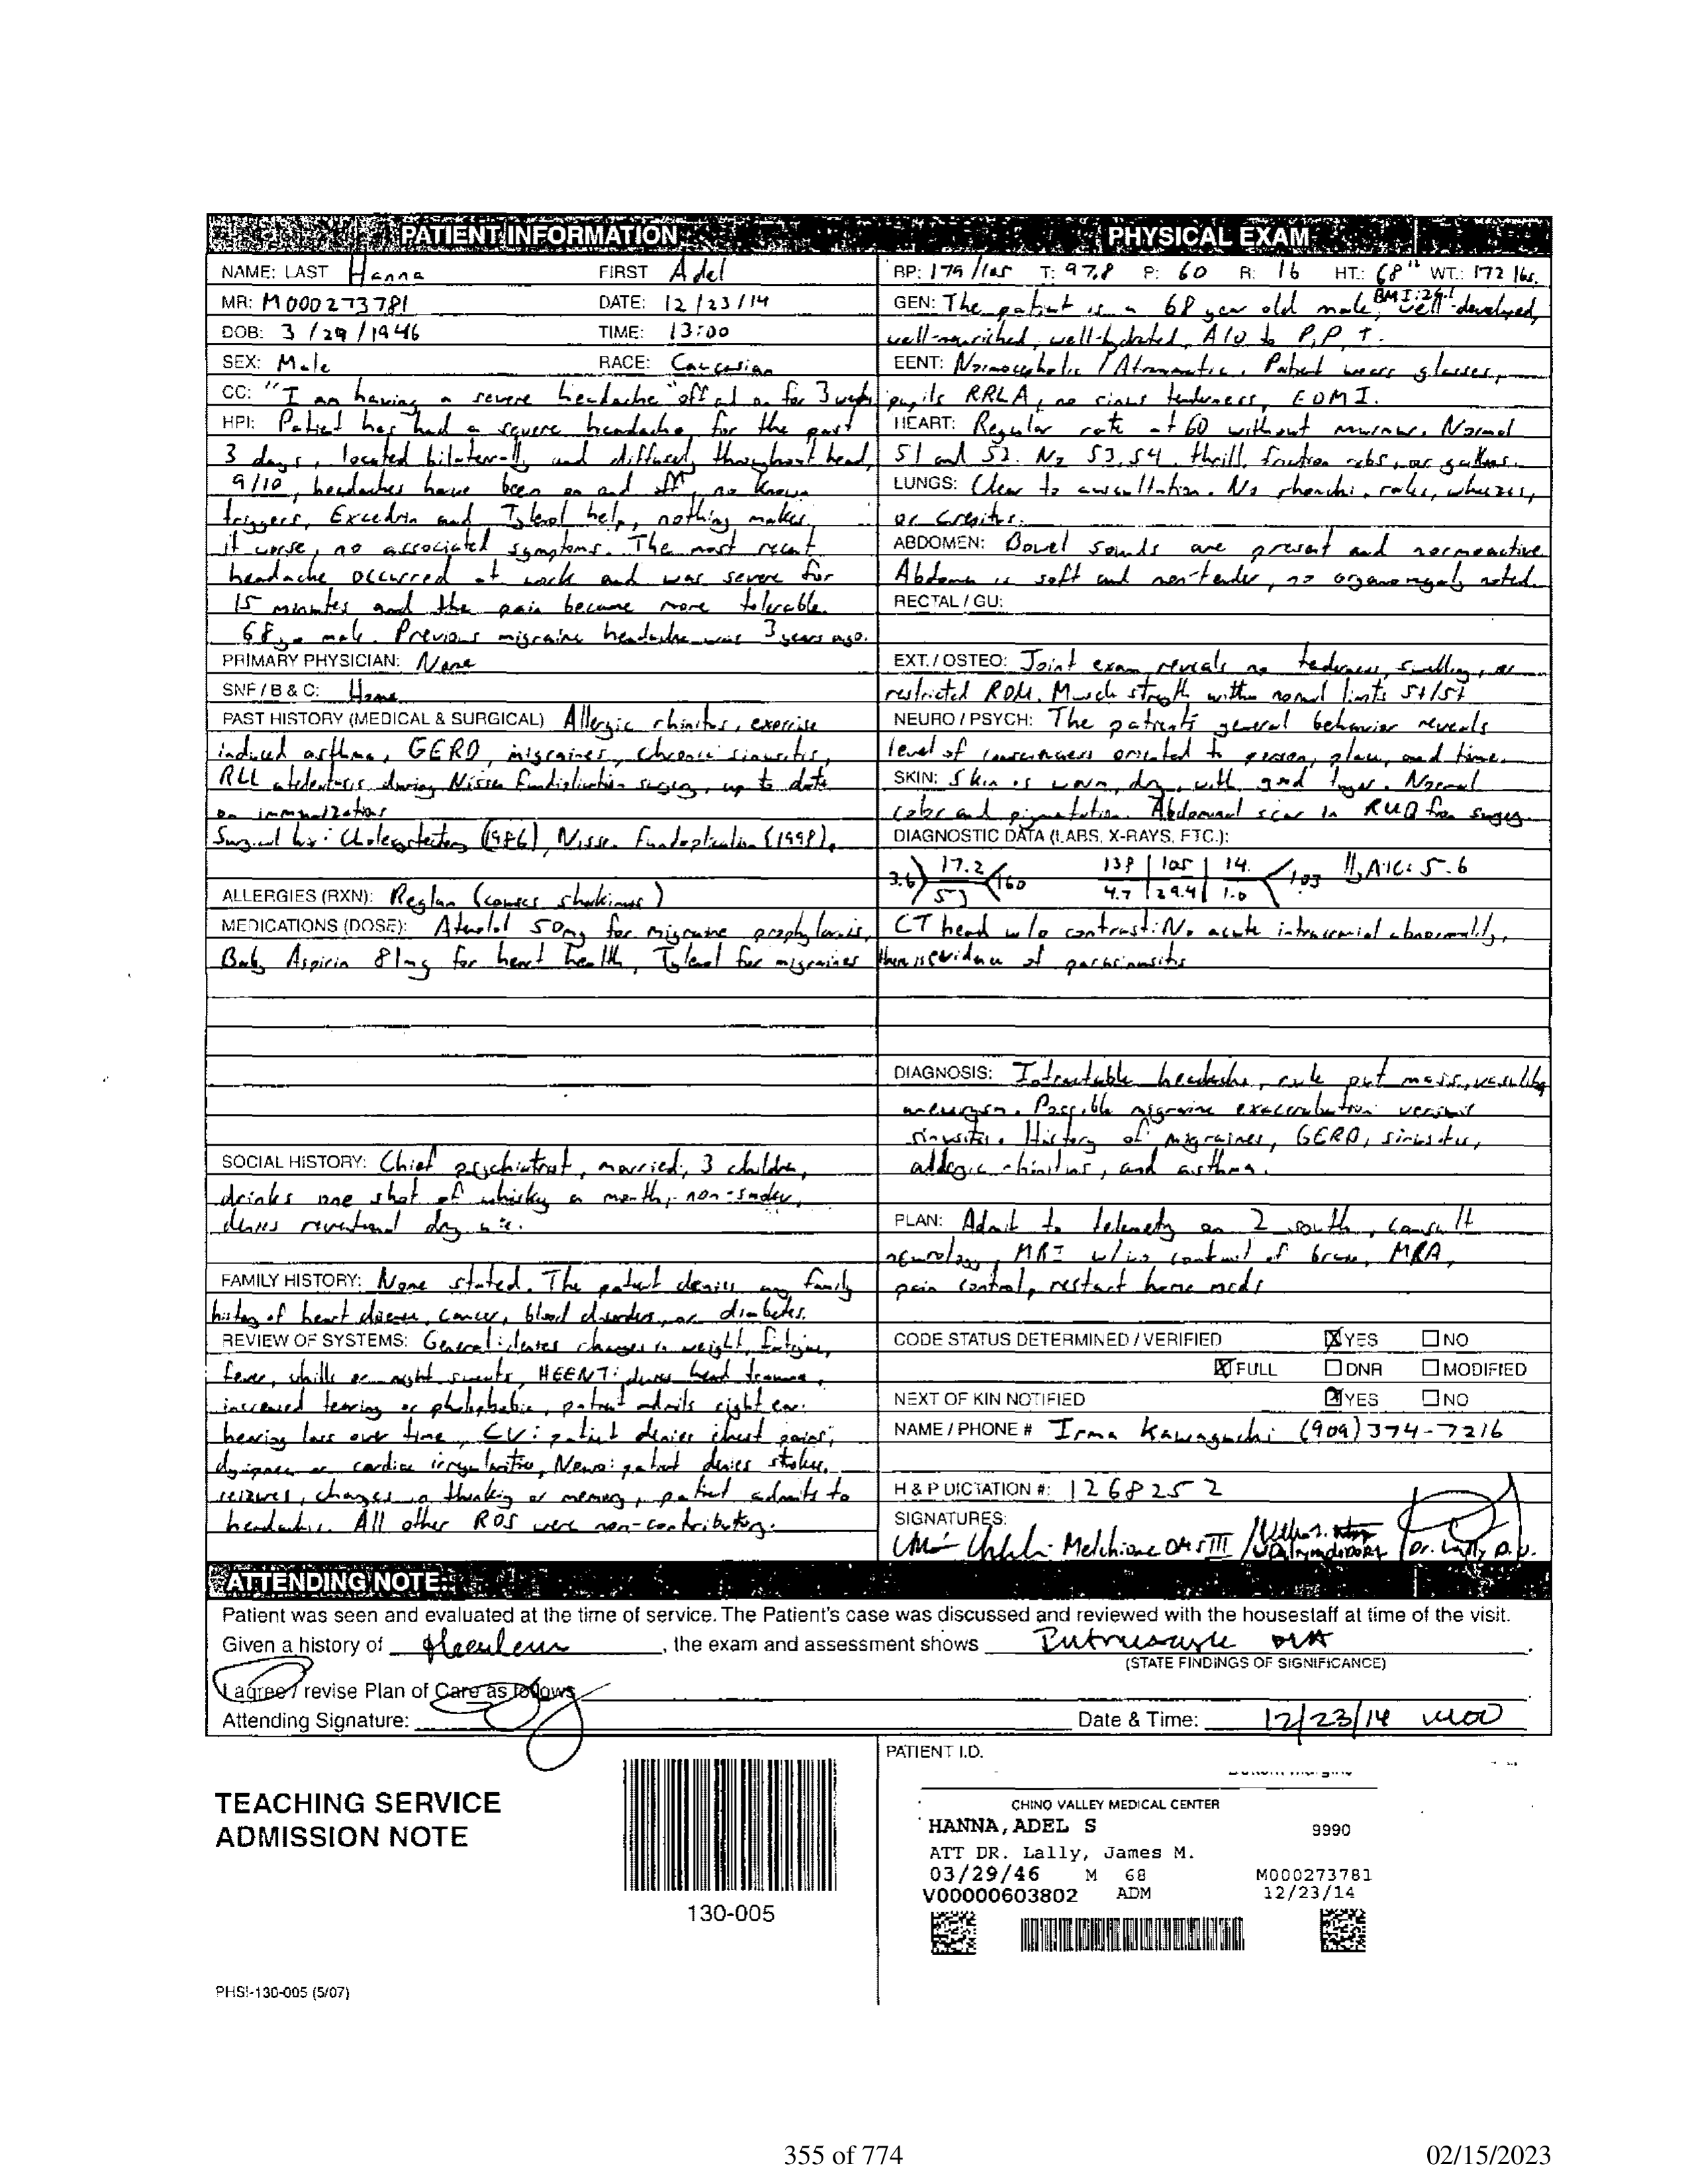 PATIENT INFORMATION
NAME: LAST Hanna FIRST Adel
MR: M000273781 DATE: 12/23/14
DOB: 3/29/1946 TIME: 13:00
SEX: Male RACE: Caucasian
CC: "I am having a severe headache" off and on for 3 weeks
HPI: Patient has had a severe headache for the past
3 days, located bilaterally and diffusely throughout head,
9/10, headaches have been on and off, no known
triggers, Excedrin and Tylenol help, nothing makes
it worse, no associated symptoms. The most recent
headache occurred at work and was severe for
15 minutes and the pain became more tolerable.
68 yo male. Previous migraine headache was 3 years ago.
PRIMARY PHYSICIAN: None
SNF / B & C: Home
PAST HISTORY (MEDICAL & SURGICAL) Allergic rhinitis, exercise
induced asthma, GERD, migraines, chronic sinusitis,
RLL atelectasis during Nissen Fundiplication surgery, up to date
on immunizations
Surgical hx: Cholecystectomy (1986), Nissen Fundoplication (1998).
ALLERGIES (RXN): Reglan (causes shakiness)
MEDICATIONS (DOSE): Atenolol 50mg for migraine prophylaxis,
Baby Aspirin 81mg for heart health, Tylenol for migraines
SOCIAL HISTORY: Chief psychiatrist, married, 3 children,
drinks one shot of whisky a month, non-smoker,
denies recreational drug use.
FAMILY HISTORY: None stated. The patient denies any family
history of heart disease, cancer, blood disorders, or diabetes.
REVIEW OF SYSTEMS: General: denies changes in weight, fatigue,
fever, chills or night sweats, HEENT: denies head trauma,
increased tearing or photophobia, patient admits right ear
hearing loss over time, CV: patient denies chest pain,
dyspnea or cardiac irregularities, Neuro: patient denies stroke,
seizures, changes in thinking or memory, patient admits to
headaches. All other ROS were non-contributory.
PHYSICAL EXAM
BP: 179/105 T: 97.8 P: 60 R: 16 HT.: 68" WT.: 172 lbs.
GEN: The patient is a 68 year old male, BMI: well-developed,
well-nourished, well-hydrated, A/O to P, P, T.
EENT: Normocephalic / Atraumatic. Patient wears glasses,
pupils RRLA, no sinus tenderness, EOMI.
HEART: Regular rate at 60 without murmur. Normal
S1 and S2. No S3, S4, thrill, friction rubs, or gallops.
LUNGS: Clear to auscultation. No rhonchi, rales, wheezes,
or crepitus.
ABDOMEN: Bowel sounds are present and normoactive
Abdomen is soft and non-tender, no organomegaly noted.
RECTAL / GU:
EXT. / OSTEO: Joint exam reveals no tenderness, swelling, or
restricted ROM. Muscle strength within normal limits 5+/5+
NEURO / PSYCH: The patient's general behavior reveals
level of consciousness oriented to person, place, and time.
SKIN: Skin is warm, dry, with good turgor. Normal
color and pigmentation. Abdominal scar in RUQ from surgery
DIAGNOSTIC DATA (LABS, X-RAYS, ETC.):
3.6 17.2 160 138 105 14. 103 A1C: 5.6
53 4.7 29.4 1.0
CT head w/o contrast: No acute intracranial abnormality,
there is evidence of pansinusitis
DIAGNOSIS: Intractable headache, rule out mass, vasculitis,
aneurysm. Possible migraine exacerbation versus
sinusitis. History of migraines, GERD, sinusitis,
allergic rhinitis, and asthma.
PLAN: Admit to telemetry on 2 south, consult
neurology, MRI w/wo contrast of brain, MRA,
pain control, restart home meds
CODE STATUS DETERMINED / VERIFIED YES NO
FULL DNR MODIFIED
NEXT OF KIN NOTIFIED YES NO
NAME / PHONE # Irma Kawaguchi (909) 374-7216
H & P DICTATION #: 1268252
SIGNATURES:
Melchione OMS III / Dr. Lally D.O.
ATTENDING NOTE:
Patient was seen and evaluated at the time of service. The Patient's case was discussed and reviewed with the housestaff at time of the visit.
Given a history of , the exam and assessment shows
(STATE FINDINGS OF SIGNIFICANCE)
I agree / revise Plan of Care as follows
Attending Signature: Date & Time: 12/23/14
TEACHING SERVICE
ADMISSION NOTE
130-005
PHSI-130-005 (5/07)
PATIENT I.D.
CHINO VALLEY MEDICAL CENTER
HANNA, ADEL S 9990
ATT DR. Lally, James M.
03/29/46 M 68 M000273781
V00000603802 ADM 12/23/14
355 of 774 02/15/2023